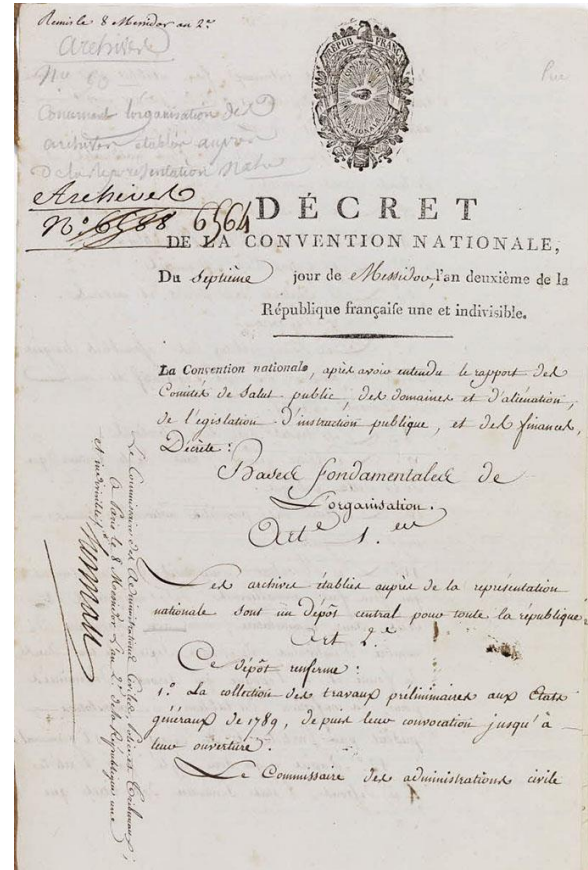 Remis le 8 Messidor an 2.e
Archives
N.o 90
Concernant l'organisation des
archives établies auprès
De la représentation Nat.le
Archives
N.o 6588 6564
RÉPUB FRANÇAISE
CONVENTION
NATIONALE
DÉCRET
DE LA CONVENTION NATIONALE,
Du Septième jour de Messidor, l'an deuxième de la
République françaife une et indivisible.
La Convention nationale, après avoir entendu le rapport des
Comités de Salut public, des domaines et d'aliénation,
de législation d'instruction publique, et des finances,
Décrète :
Bases fondamentales de
L'organisation.
Art.e 1.er
Les archives établies auprès de la représentation
nationale sont un dépôt central pour toute la république.
Art 2.e
Ce dépôt renferme :
1.o La collection des travaux préliminaires aux Etats
généraux de 1789, depuis leur convocation jusqu'à
leur ouverture.
Le Commissaire des administrations civile
Le Commissaire des Administrations Civiles, Police et Tribunaux ;
A Paris le 8 Messidor L'an 2.e de la République une
et indivisible